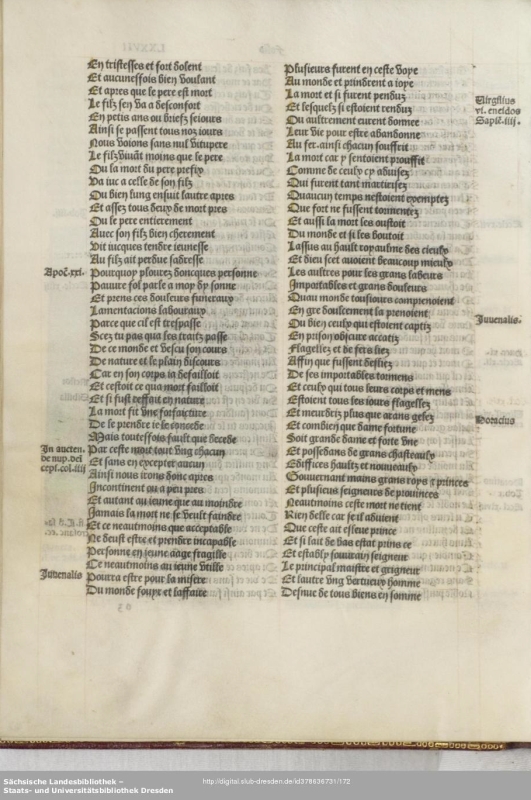 En tristesses et fort dolent
Et aucunessois bien voulant
Et apres que le pere est mort
Le filz sen va a desconfort
En petis ans ou briefz seiours
Ainsi se passent tous noz iours
Nous voions sans nul vitupere
Le filz viuāt moins que le pere
Ou la mort du pere prefix
Va iuc a celle de son filz
Ou bien lung ensuit lautre apres
Et assez tous deux de mort pres
Ou le pere entierement
Auec son filz bien cherement
Vit iucques tendre ieunesse
Au filz ait perdue sadresse
Apoc̄.xxi.
Pourquoy plourez doncques personne
Pauure fol parle a moy dy sonne
Et prens ces douleurs funeraux
Lamentacions labouraux
Parce que cil est trespasse
Scez tu pas qua les traitz passe
De ce monde et vescu son cours
De nature et le plain discours
Car en son corps ia defailloit
Et cestoit ce qua mort failloit
Et si fust deffait en nature
La mort fit vne forfaicture
De le prendre ie le concede
Mais toutesfois fault que decede
In aucten.
de nup. del
cepl.col.iiij
Par ceste mort tout vng chacun
Et sans en excepter aucun
Ainsi nous irons donc apres
Incontinent ou a peu pres
Et autant ou ieune que au moindre
Jamais la mort ne se veult faindre
Et ce neautmoins que acceptable
Ne deust estre et prendre incapable
Personne en ieune aage fragille
Ce neautmoins au ieune vtille
Juuenalis
Pourra estre pour la misere
Du monde fouyr et laffaire
Plusieurs furent en ceste voye
Au monde et prindrent a ioye
La mort et si furent penduz
Et lesquelz si estoient renduz
Ou aultrement eurent donnee
Leur vie pour estre abandonne
Virgilius
vi. eneidos
Sapiē.iiij.
Au fer. ainsi chacun souffrit
La mort car y sentoient prouffit
Comme de ceulx cy aduisez
Qui furent tant martirisez
Quaucun temps nestoient exemptez
Que fort ne fussent tormentez
Et aussi la mort les oustoit
Du monde et si les boutoit
Lassus au hault royaulme des cieulx
Et dieu scet auoient beaucoup mieulx
Les aultres pour les grans labeurs
Importables et grans douleurs
Quau monde tousiours comprenoient
En gre doulcement la prenoient
Juuenalis.
Ou bien ceulx qui estoient captiz
En prison obscure accatiz
Flagellez et de fers liez
Affin que fussent desliez
De ses importables tormens
Et ceulx qui tous leurs corps et mens
Estoient tous les iours flagellez
Et meurdriz plus que grans gelez
Horacius
Et combien que dame fortune
Soit grande dame et forte vne
Et possedans de grans chasteaulx
Edifices haultz et nouueaulx
Gouuernant mains grans roys & princes
Et plusieurs seigneurs de prouinces
Neautmoins ceste mort ne tient
Rien delle car se il aduient
Que ceste ait esleue prince
Et
Et estably souuerain seigneur
Le principal maistre et grigneur
Et lautre vng vertueux homme
Desnue de tous biens en somme
Sächsische Landesbibliothek –
Staats- und Universitätsbibliothek Dresden
http://digital.slub-dresden.de/id378636731/172